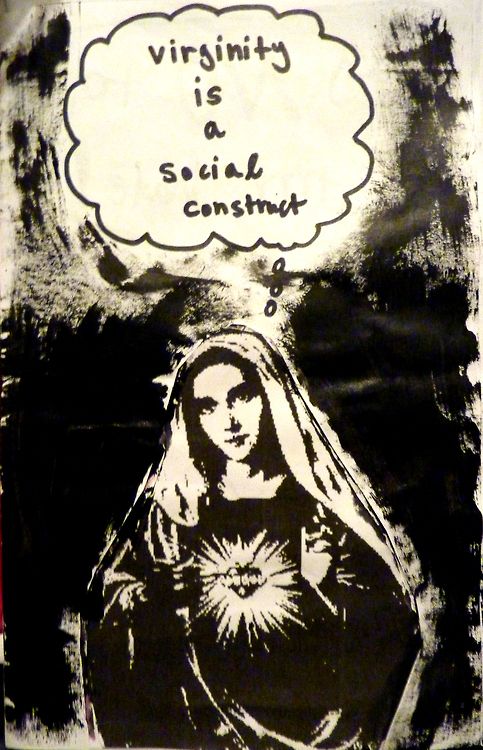 virginity
is
a
social
construct